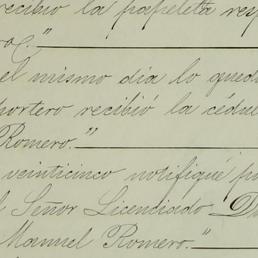 recibio la papeleta resp
roz."
el mismo dia lo qued
portero recibió la cédul
Romero."
veinticinco notifiqué p
l Señor Licenciado D
Manuel Romero."